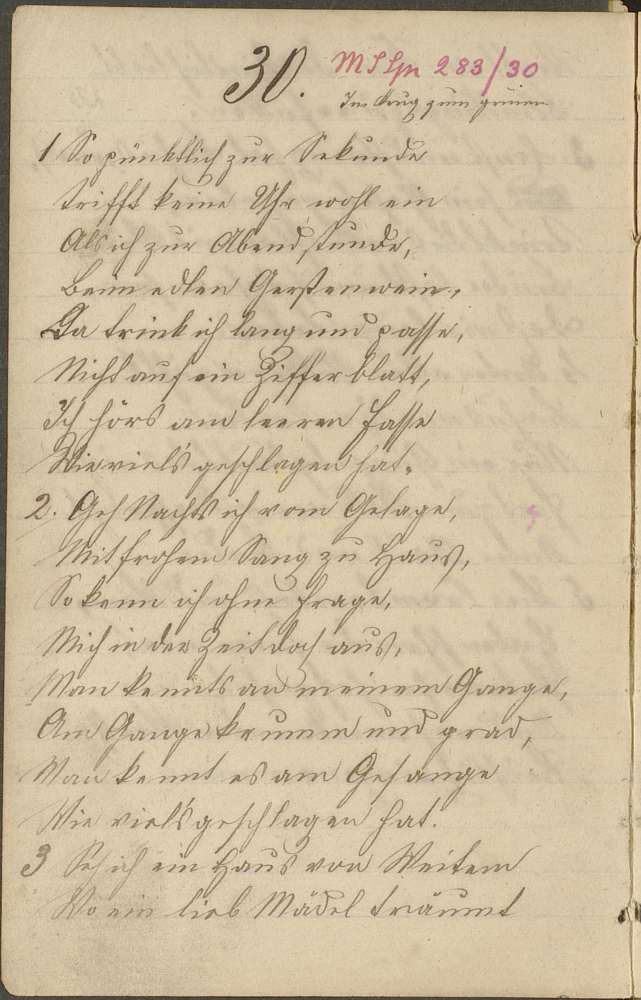 30.
MS Lpr 283/30
Im Krug zum grünen
1 So pünktlich zur Sekunde
trifft keine Uhr wohl ein
Als ich zur Abendstunde,
Beim edlen Gerstenwein,
Da trink ich lang und passe,
Nicht auf ein Zifferblatt,
Ich hörs am leeren Fasse
Wie viels geschlagen hat.
2. Geh Nachts ich vom Gelage,
Mit frohem Sang zu Haus,
So kenn ich ohne Frage,
Mich in der Zeit doch aus,
Man kennts an meinem Gange,
Am Gange krumm und grad,
Man kennt es am Gesange
Wie viels geschlagen hat.
3 Seh ich ein Haus von Weitem
Wo ein lieb Mädel träumt